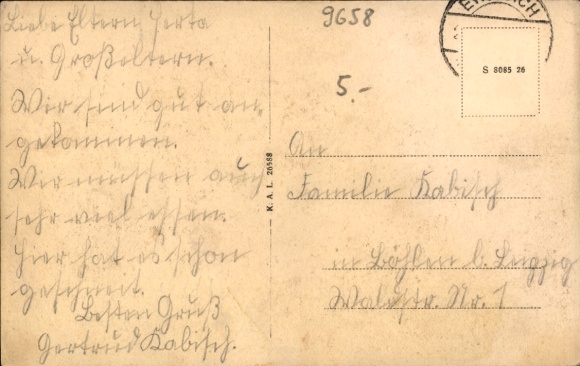 Liebe Eltern, Herta
u. Großeltern.
Wir sind gut an-
gekommen.
Wir müssen auch
sehr viel essen.
Hier hat es schon
geschneit.
Besten Gruß
Gertrud Kabisch.
K. A. L. 26588
9658
5.-
S 8085 26
An
Familie Kabisch
in Böhlen b. Leipzig
Waldstr. Nr. 1